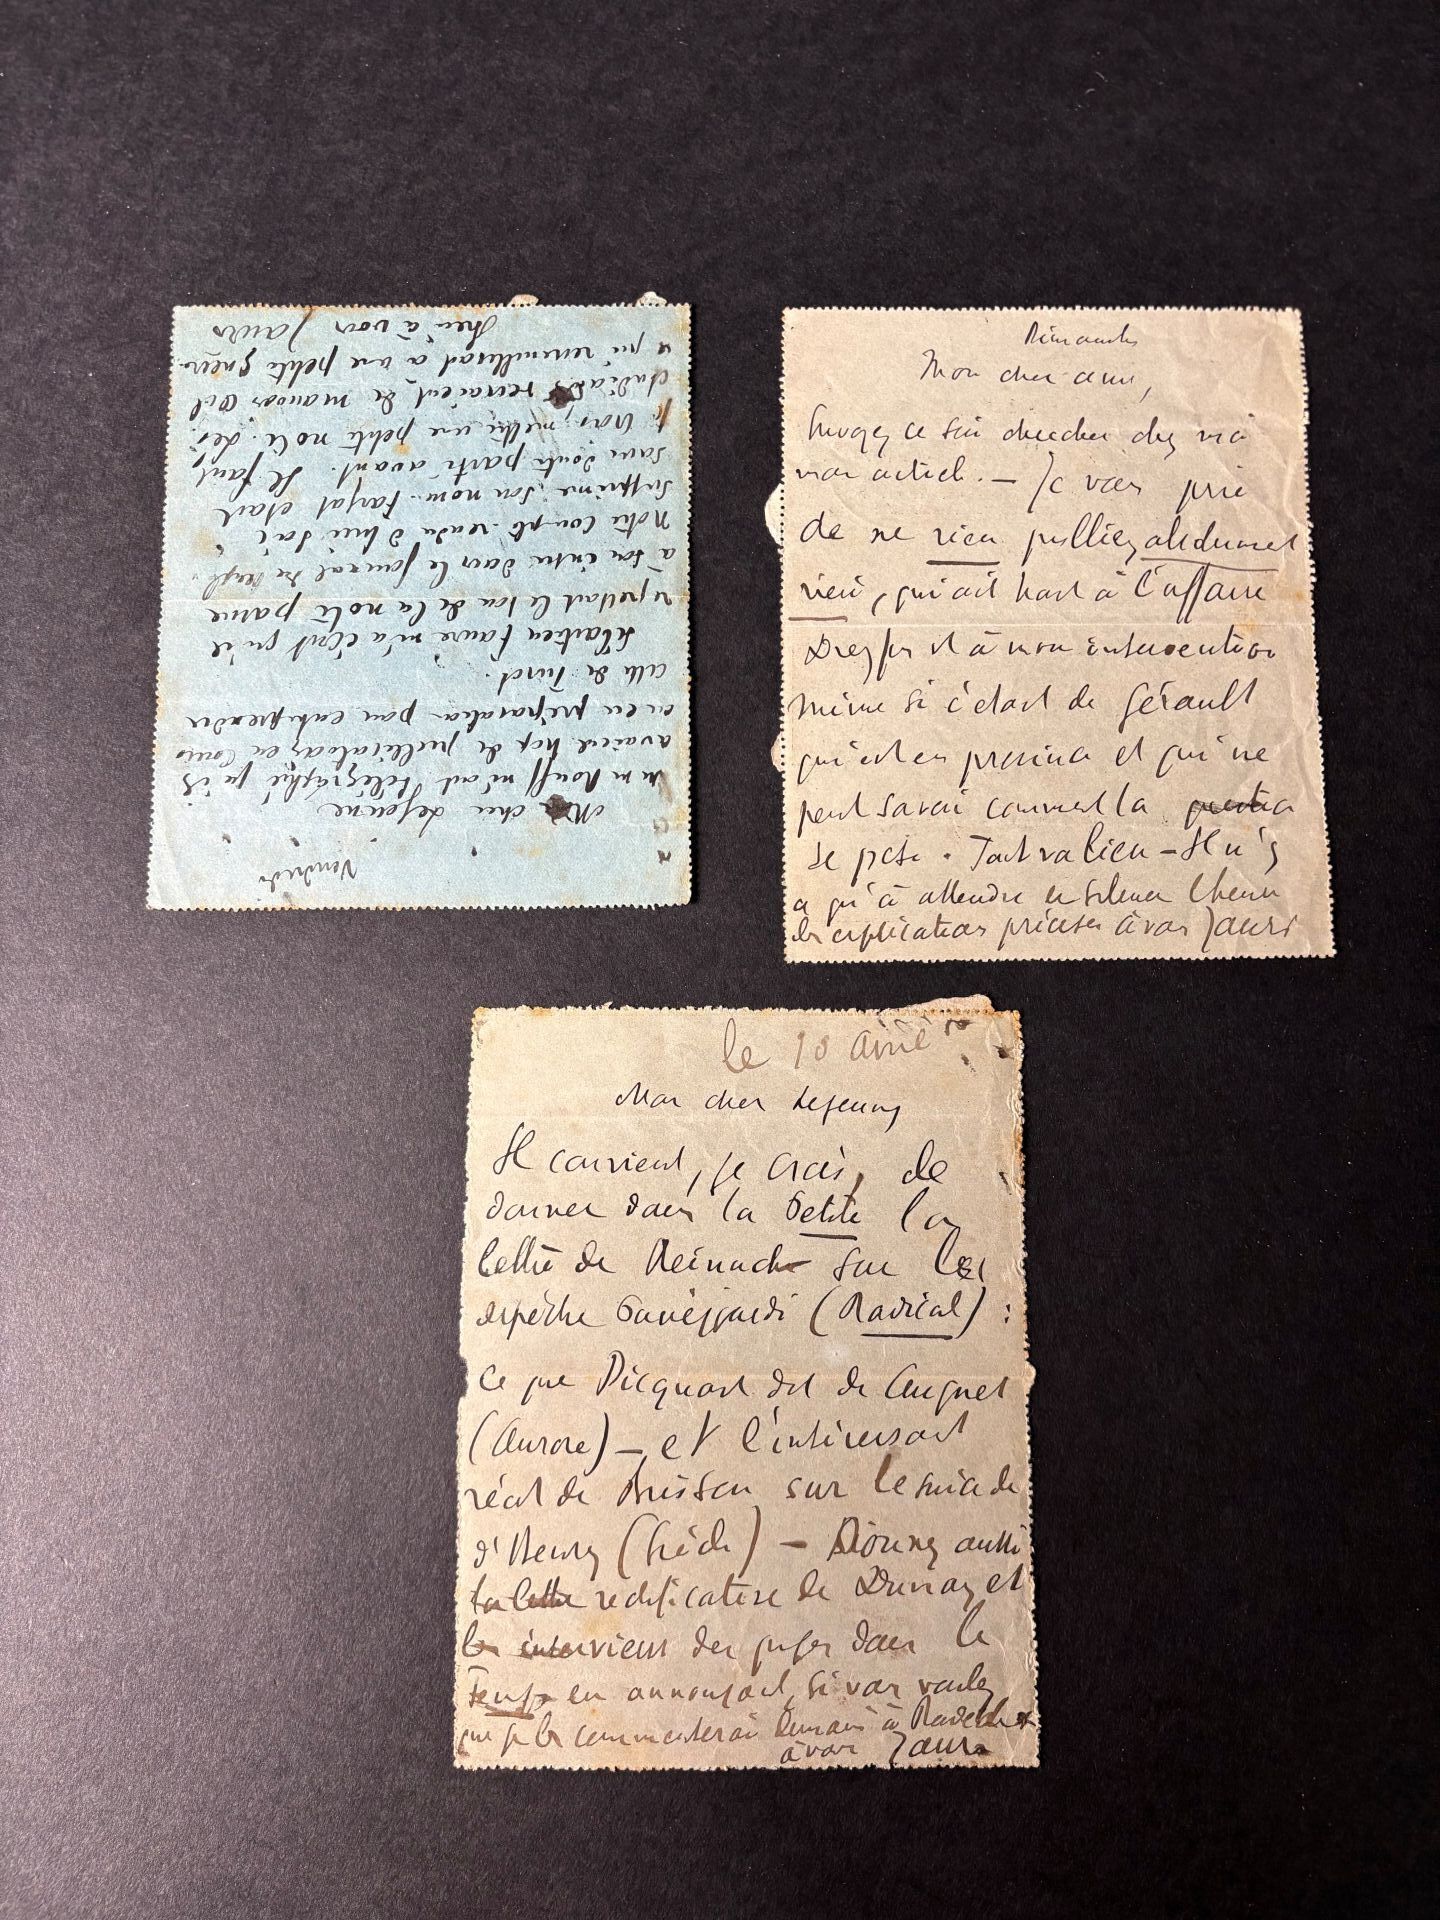 Vendredi
Mon cher Lejeune
m'ont télégraphié qu'ils
avaient trop de publications en cours
ou en préparation pour entreprendre
celle de Turot.
Sébastien Faure m'a écrit qu'il
regrettait le ton de la note parue
à son entrée dans le Journal du Peuple.
Notre compte-rendu d'hier soir
supprime son nom. était
sans doute parti avant. Il faut
mettre une petite note. Les
verraient de mauvais œil
qui ressemblerait à une petite guerre.
Bien à vous Jaurès
Dimanche
Mon cher ami,
Envoyez ce soir chercher chez moi
mon article. — Je vous prie
de ne rien publier, absolument
rien, qui ait trait à l'affaire
Dreyfus et à mon intervention
même si c'était de Gérault
qui est en province et qui ne
peut savoir comment la question
se pose. Tout va bien — Il n'y
a qu'à attendre en silence l'heure
des explications précises à vous Jaurès
le 10 avril
Mon cher Lejeune
Il convient, je crois, de
donner dans la Petite la
lettre de Reinach sur les
dépêche Panizzardi (Radical) :
ce que Picquart dit de Cuignet
(Aurore) — et l'intéressant
récit de Brisson sur le suicide
d'Henry (Siècle) — Donnez aussi
la lettre rectificative de Dupuy et
les interviews des juges dans le
Temps en annonçant, si vous voulez
que je les commenterai demain
à vous Jaurès